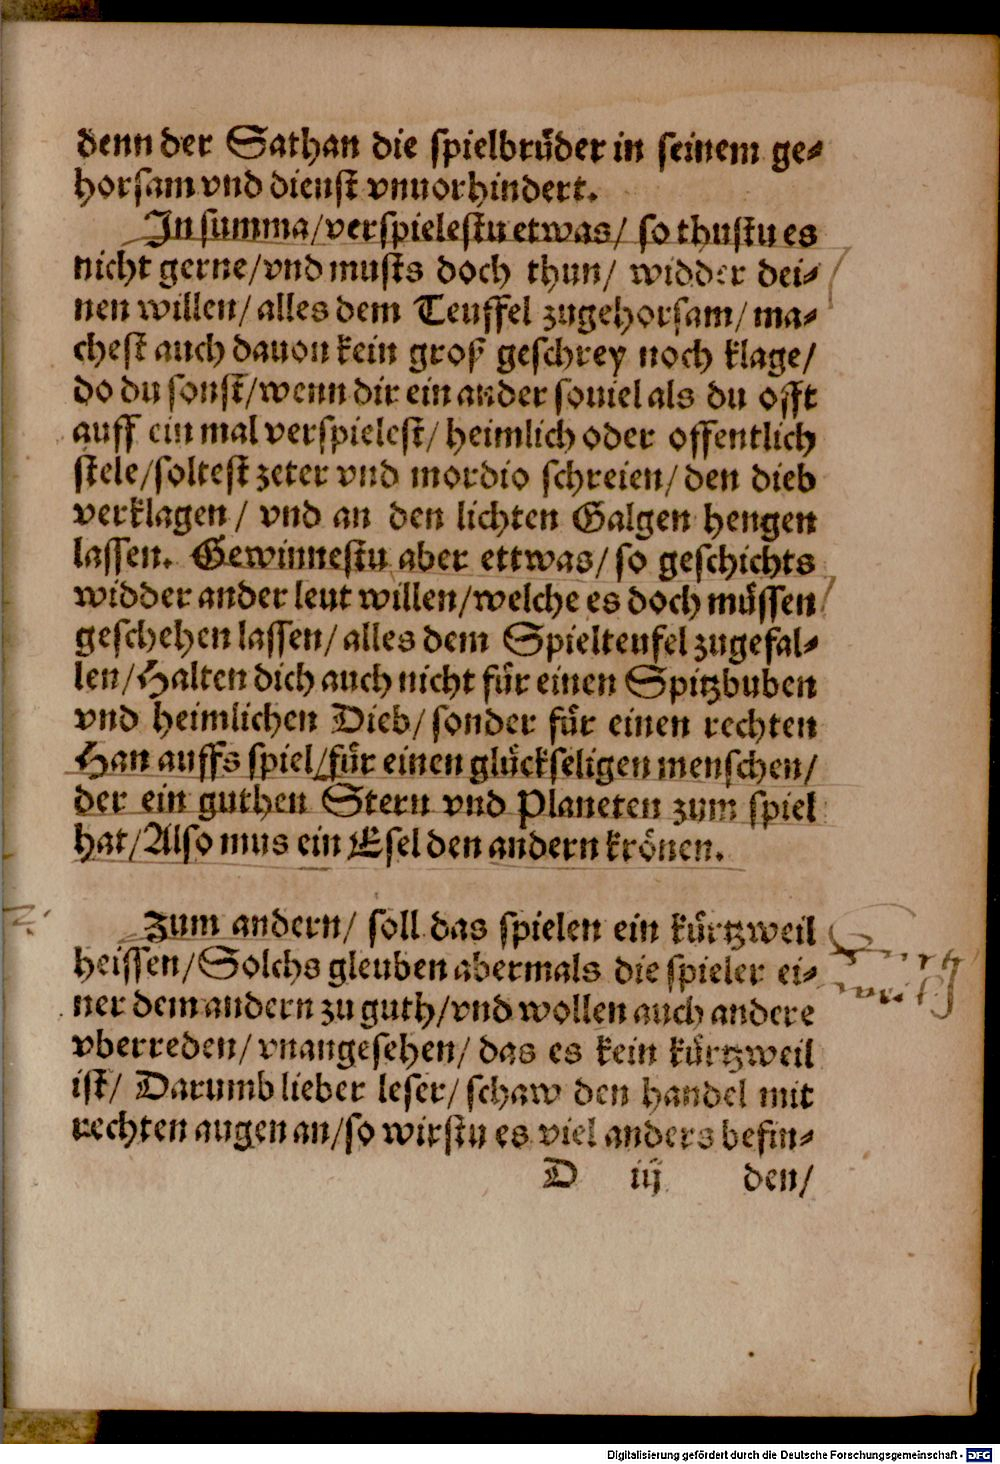 denn der Sathan die spielbruͤder in seinem ge⸗
horsam vnd dienst vnuorhindert.
In summa/verspielestu etwas/ so thustu es
nicht gerne/vnd musts doch thun/ widder dei⸗
nen willen/ alles dem Teuffel zugehorsam/ ma⸗
chest auch dauon kein groß geschrey noch klage/
do du sonst/wenn dir ein ander souiel als du offt
auff ein mal verspielest/ heimlich oder offentlich
stele/soltest zeter vnd mordio schreien/ den dieb
verklagen/ vnd an den lichten Galgen hengen
lassen. Gewinnestu aber ettwas/ so geschichts
widder ander leut willen/welche es doch muͤssen
geschehen lassen/ alles dem Spielteufel zugefal⸗
len/Halten dich auch nicht fuͤr einen Spitzbuben
vnd heimlichen Dieb/ sonder fuͤr einen rechten
Han auffs spiel/fuͤr einen gluͤckseligen menschen/
der ein guthen Stern vnd Planeten zum spiel
hat/Also mus ein Esel den andern kroͤnen.
2.
Zum andern/ soll das spielen ein kuͤrtzweil
heissen/Solchs gleuben abermals die spieler ei⸗
ner dem andern zu guth/vnd wollen auch andere
vberreden/ vnangesehen/ das es kein kuͤrtzweil
ist/ Darumb lieber leser/ schaw den handel mit
rechten augen an/so wirstu es viel anders befin⸗
D iij den/
Digitalisierung gefördert durch die Deutsche Forschungsgemeinschaft - DFG